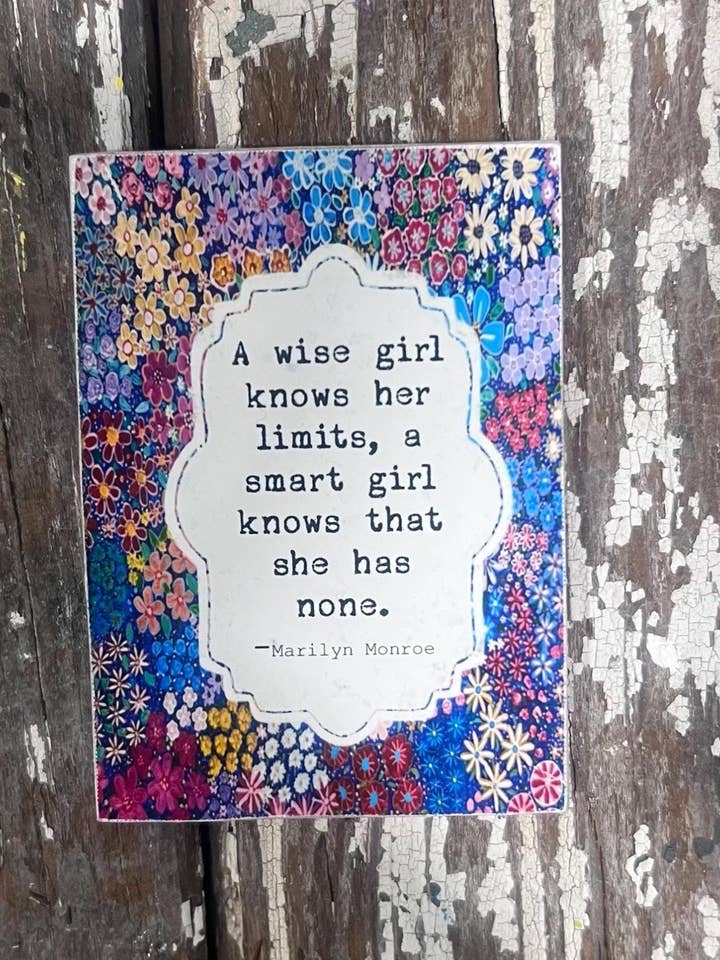 A wise girl
knows her
limits, a
smart girl
knows that
she has
none.
—Marilyn Monroe